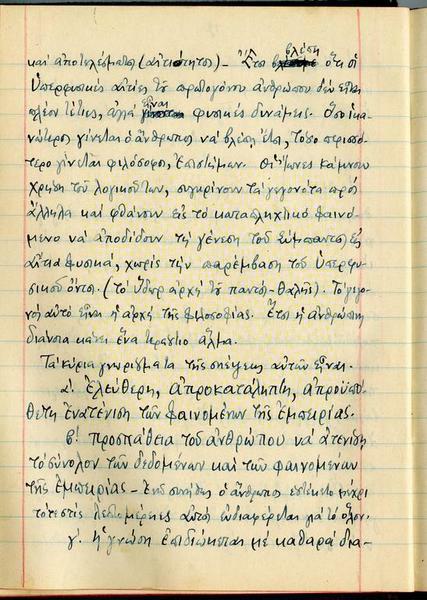 καὶ ἀποτελέσματος (αἰτιότητος) - Ἔτσι βλέπει ὅτι οἱ
ὑπερφυσικὲς αἰτίες τοῦ πρωτογόνου ἀνθρώπου δὲν εἶναι
πλέον τέτιες, ἀλλὰ εἶναι φυσικὲς δυνάμεις. Ὅσο ἱκα-
νώτερος γίνεται ὁ ἄνθρωπος νὰ βλέπῃ ἔτσι, τόσο περισσό-
τερο γίνεται φιλόσοφος, ἐπιστήμων. Οἱ Ἴωνες κάμνουν
χρῆση τοῦ λογικοῦ των, συγκρίνουν τὰ γεγονότα πρὸς
ἄλληλα καὶ φθάνουν εἰς τὸ καταπληκτικὸ φαινό-
μενο νὰ ἀποδίδουν τὴ γένεση τοῦ σύμπαντος εἰς
αἴτια φυσικά, χωρὶς τὴν παρέμβαση τοῦ ὑπερφυ-
σικοῦ ὄντος. (τὸ ὕδωρ ἀρχὴ τοῦ παντὸς - Θαλῆς). Τὸ γεγο-
νὸς αὐτὸ εἶναι ἡ ἀρχὴ τῆς φιλοσοφίας. Ἔτσι ἡ ἀνθρώπινη
διάνοια κάνει ἕνα τεράστιο ἅλμα.
Τὰ κύρια γνωρίσματα τῆς σκέψεως αὐτῶν εἶναι.
α΄. Ἐλεύθερη, ἀπροκατάληπτη, ἀπροϋπό-
θετη ἐνατένιση τῶν φαινομένων τῆς ἐμπειρίας.
β΄ προσπάθεια τοῦ ἀνθρώπου νὰ ἀτενίσῃ
τὸ σύνολον τῶν δεδομένων καὶ τῶν φαινομένων
τῆς ἐμπειρίας - Ἐνῶ συνήθως ὁ ἄνθρωπος ἐστέκετο μέχρι
τότε στὶς λεπτομέρειες αὐτοὶ ἐνδιαφέρεται γιὰ τὸ ὅλον.
γ΄. ἡ γνώση ἐπιδιώκεται μὲ καθαρὰ δια-